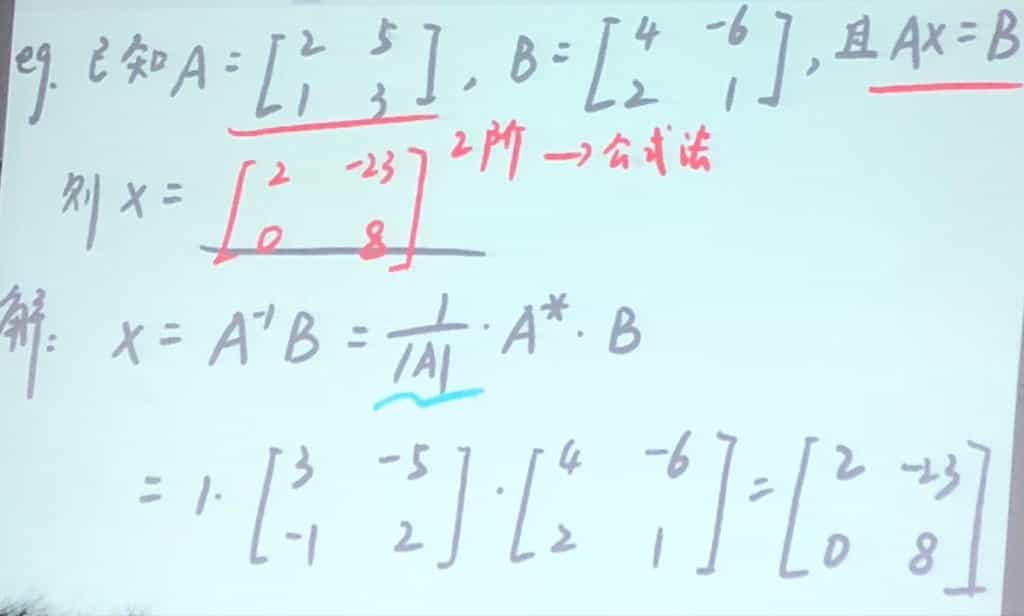 eg. 已知 A = [2 5; 1 3], B = [4 -6; 2 1], 且 AX = B
则 X = [2 -23; 0 8] 2阶 → 公式法
解: X = A⁻¹B = 1/|A| · A* · B
= 1· [3 -5; -1 2] · [4 -6; 2 1] = [2 -23; 0 8]